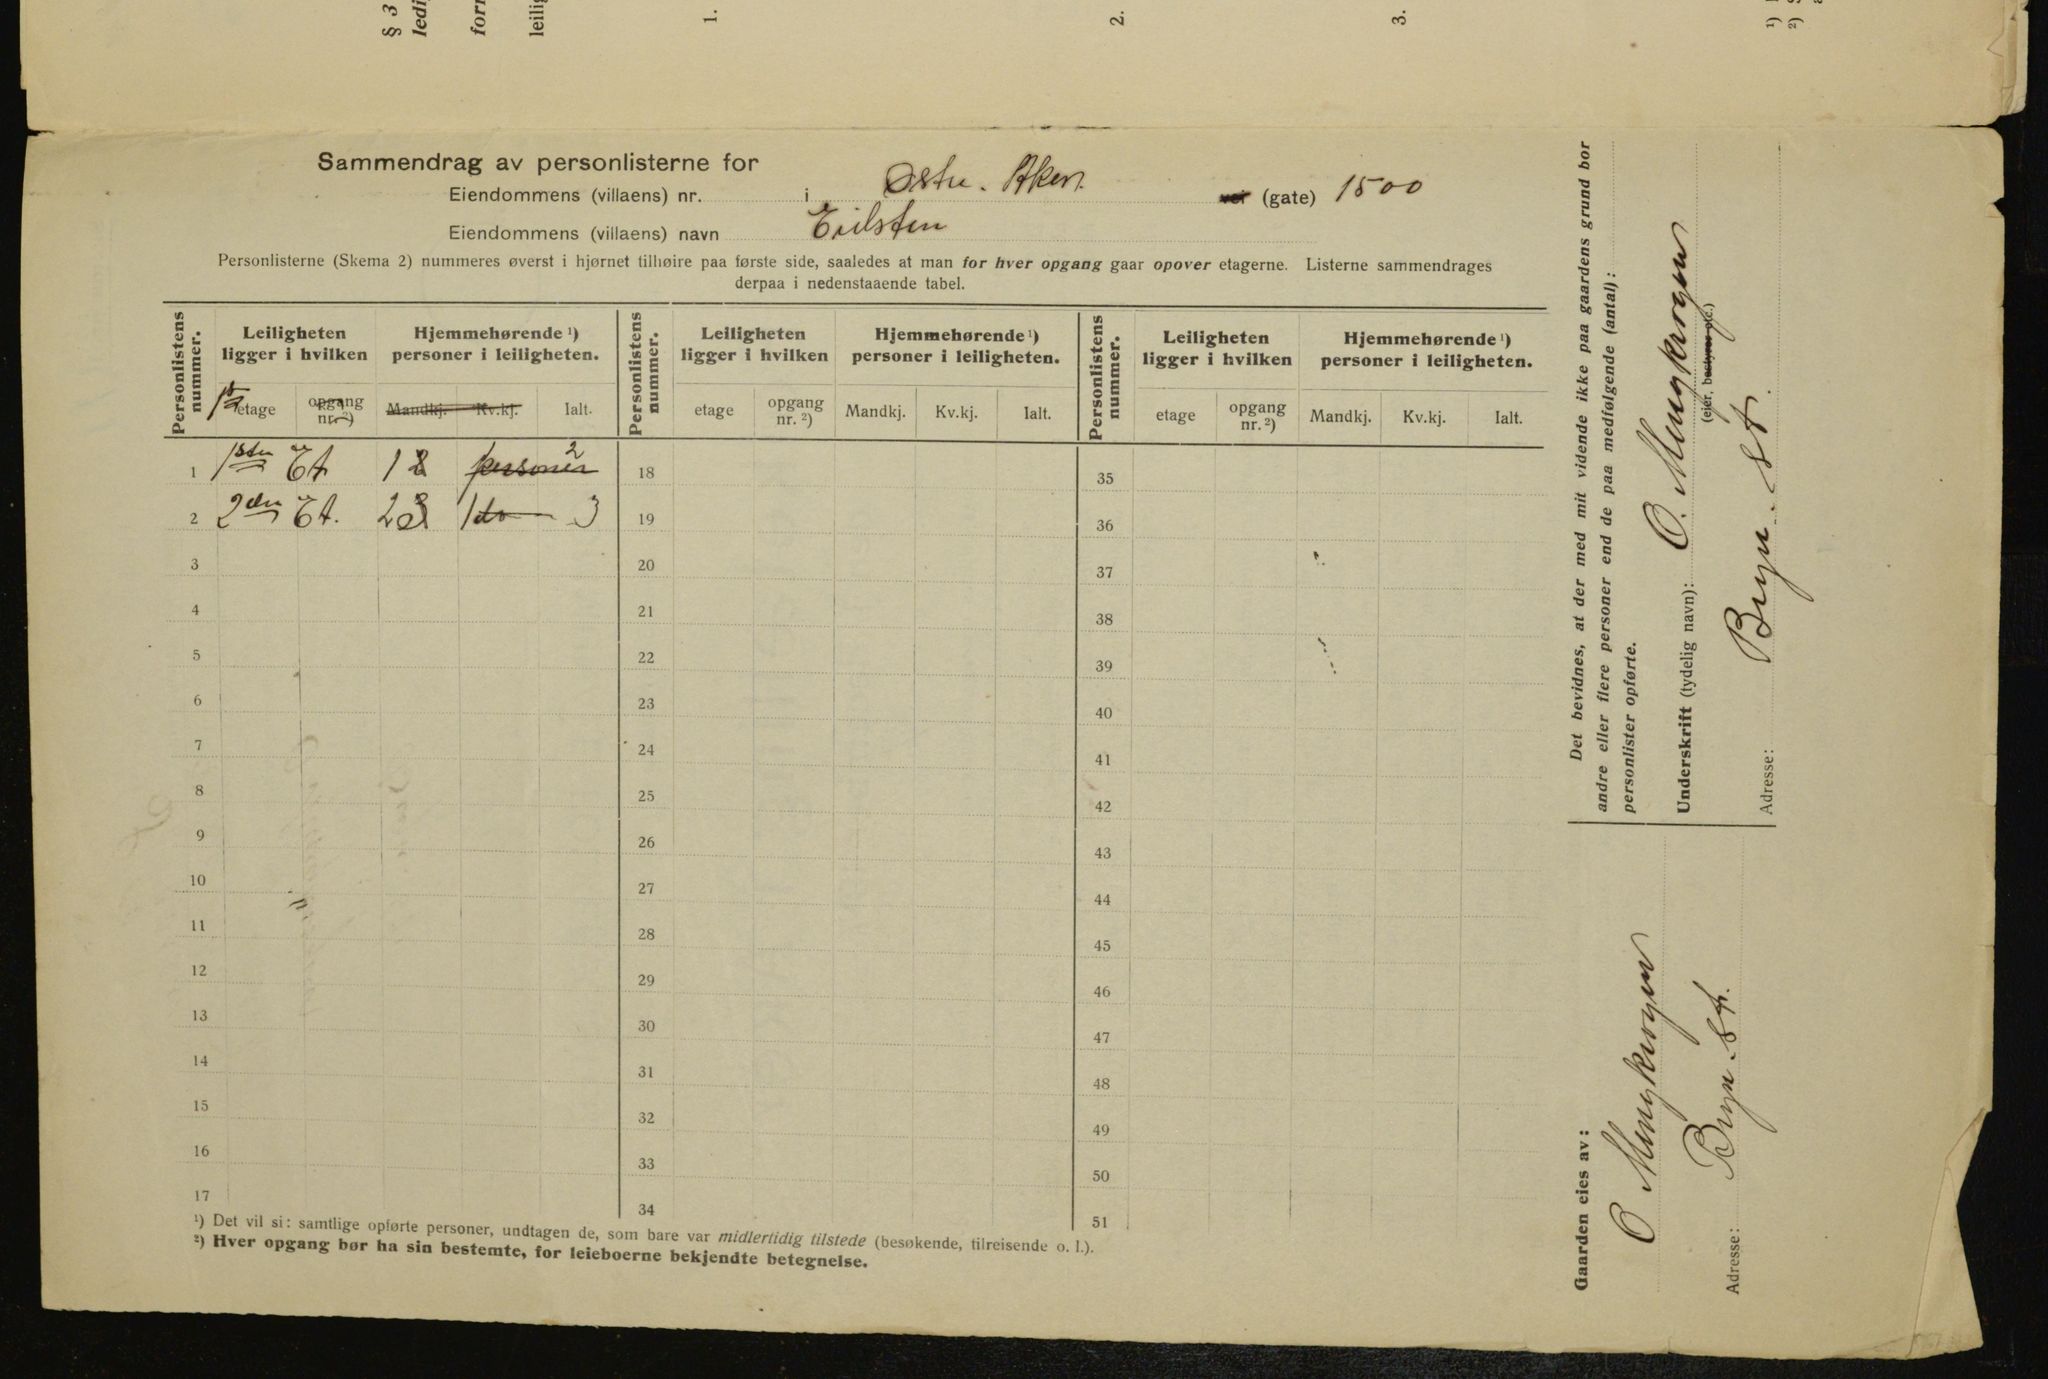 § 3
ledi
forr
leilig
1.
2.
3.
1)
2)
Sammendrag av personlisterne for
Eiendommens (villaens) nr. i Østre. Aker. vei (gate) 1500
Eiendommens (villaens) navn Eilsten
Personlisterne (Skema 2) nummeres øverst i hjørnet tilhøire paa første side, saaledes at man for hver opgang gaar opover etagerne. Listerne sammendrages
derpaa i nedenstaaende tabel.
Personlistens nummer. Leiligheten ligger i hvilken Hjemmehørende ¹) personer i leiligheten. Personlistens nummer. Leiligheten ligger i hvilken Hjemmehørende ¹) personer i leiligheten. Personlistens nummer. Leiligheten ligger i hvilken Hjemmehørende ¹) personer i leiligheten.
etage opgang nr. ²) Mandkj. Kv.kj. Ialt. etage opgang nr. ²) Mandkj. Kv.kj. Ialt. etage opgang nr. ²) Mandkj. Kv.kj. Ialt.
1 1ste Et 1 2 1 personer 2 18 35
2 2den Et. 2 3 1 do 3 19 36
3 20 37
4 21 38
5 22 39
6 23 40
7 24 41
8 25 42
9 26 43
10 27 44
11 28 45
12 29 46
13 30 47
14 31 48
15 32 49
16 33 50
17 34 51
¹) Det vil si: samtlige opførte personer, undtagen de, som bare var midlertidig tilstede (besøkende, tilreisende o. l.).
²) Hver opgang bør ha sin bestemte, for leieboerne bekjendte betegnelse.
Det bevidnes, at der med mit vidende ikke paa gaardens grund bor
andre eller flere personer end de paa medfølgende (antal):
personlister opførte.
Underskrift (tydelig navn): O.
(eier, bestyrer etc.)
Adresse: Bryn. St.
Gaarden eies av:
O
Adresse: Bryn. St.